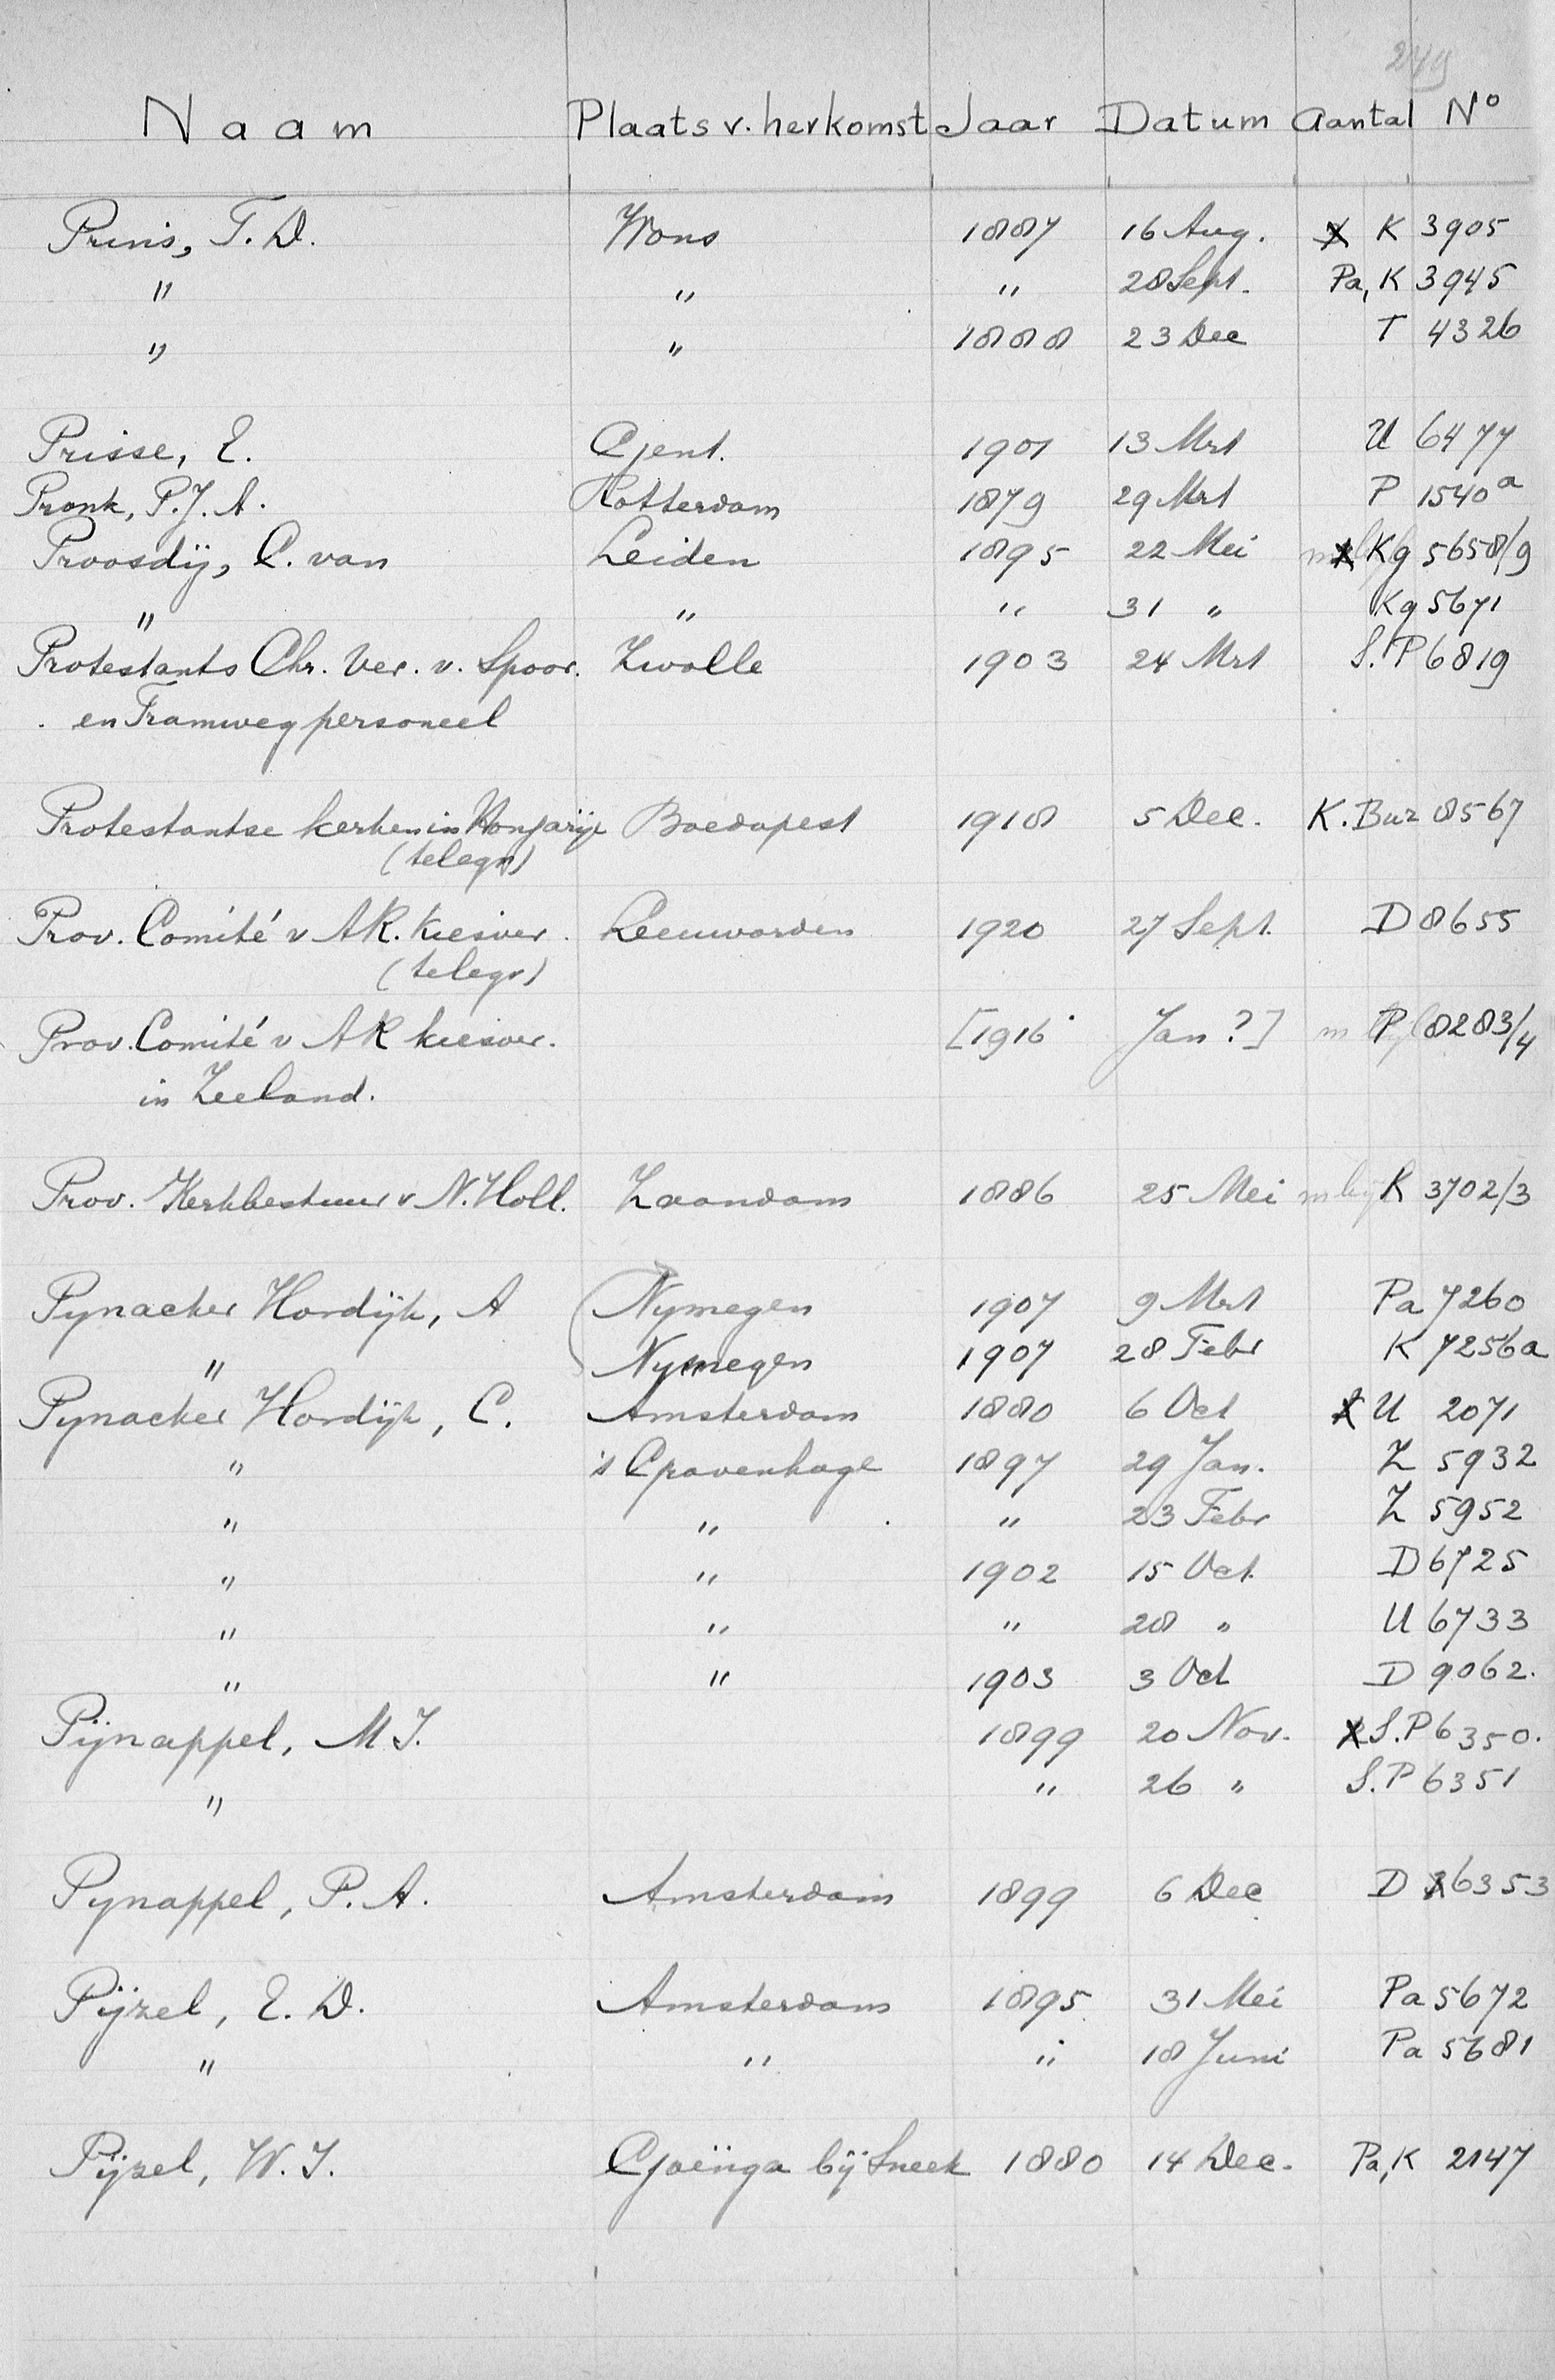 249
Naam Plaats v. herkomst Jaar Datum Aantal No
Prins, T. D. Wons 1887 16 Aug. K 3905
" " " 28 Sept. Pa, K 3945
" " 1888 23 Dec T 4326
Prisse, E. Gent. 1901 13 Mrt U 6477
Pronk, P. J. A. Rotterdam 1879 29 Mrt P 1540a
Proosdij, C. van Leiden 1895 22 Mei Kg 5658/9
" " " 31 " Kg 5671
Protestants Chr. Ver. v. Spoor. Zwolle 1903 24 Mrt S. P 6819
en Tramwegpersoneel
Protestantse kerken in Hongarije Boedapest 1918 5 Dec. K. Buz 8567
(telegr)
Prov. Comité v AR. kiesver. Leeuwarden 1920 27 Sept. D 8655
(telegr)
Prov. Comité v AR kiesver. [1916 Jan ?] P 8283/4
in Zeeland.
Prov. Kerkbestuur v N. Holl. Zaandam 1886 25 Mei m bijl K 3702/3
Pynacker Hordijk, A Nymegen 1907 9 Mrt Pa 7260
" Nymegen 1907 28 Febr K 7256a
Pynacker Hordijk, C. Amsterdam 1880 6 Oct U 2071
" 's Gravenhage 1897 29 Jan. Z 5932
" " " 23 Febr Z 5952
" " 1902 15 Oct. D 6725
" " " 28 " U 6733
" " 1903 3 Oct D 9062.
Pijnappel, M J. 1899 20 Nov. S. P 6350.
" " 26 " S. P 6351
Pynappel, P. A. Amsterdam 1899 6 Dec D 6353
Pijzel, E. D. Amsterdam 1895 31 Mei Pa 5672
" " " 18 Juni Pa 5681
Pijzel, W. J. Goënga bij Sneek 1880 14 Dec. Pa, K 2147